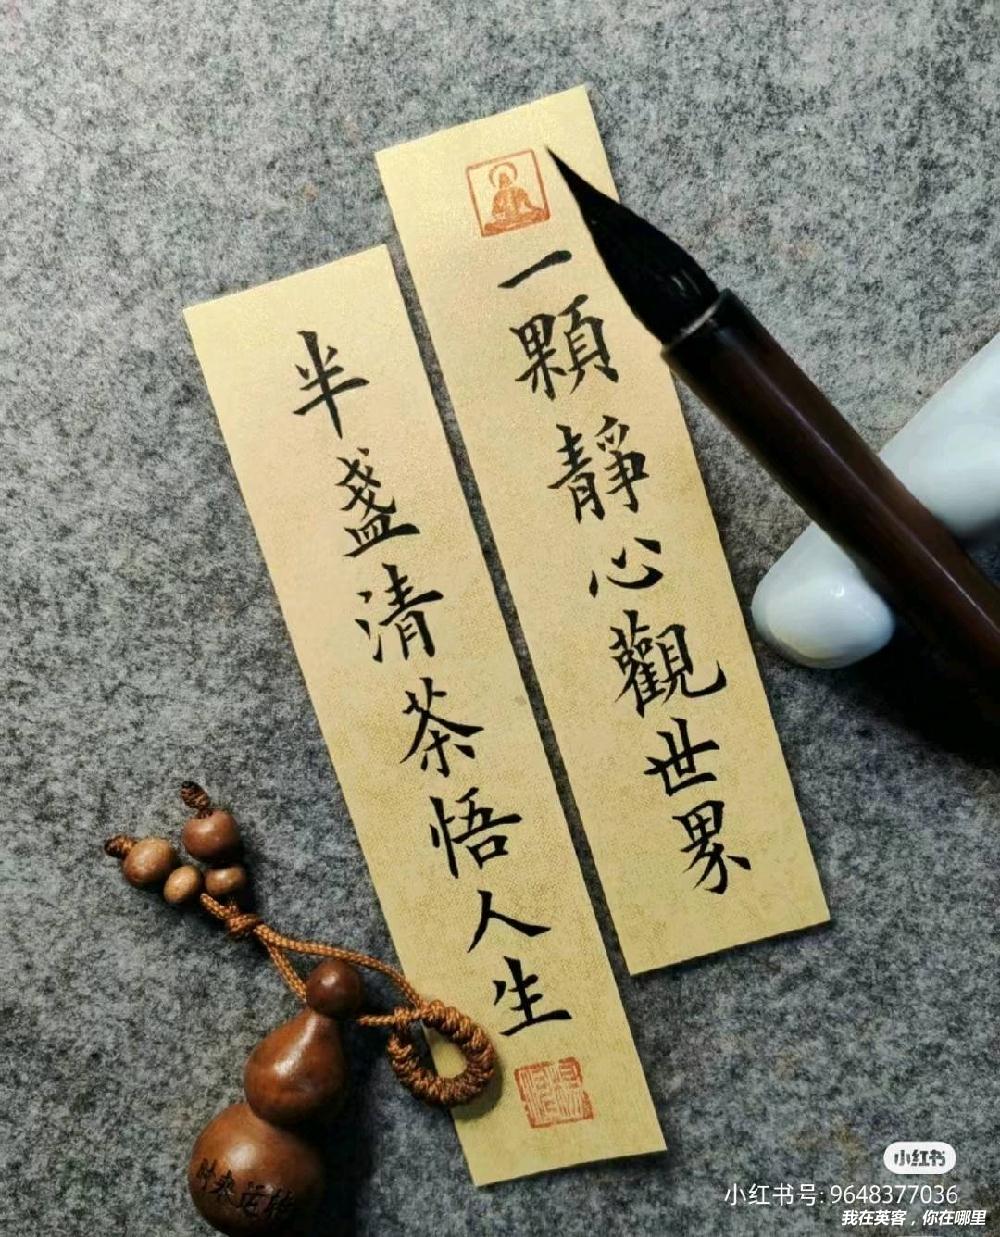 一顆靜心觀世界
半盞清茶悟人生
時來运转
小红书
小红书号: 9648377036
我在英客，你在哪里